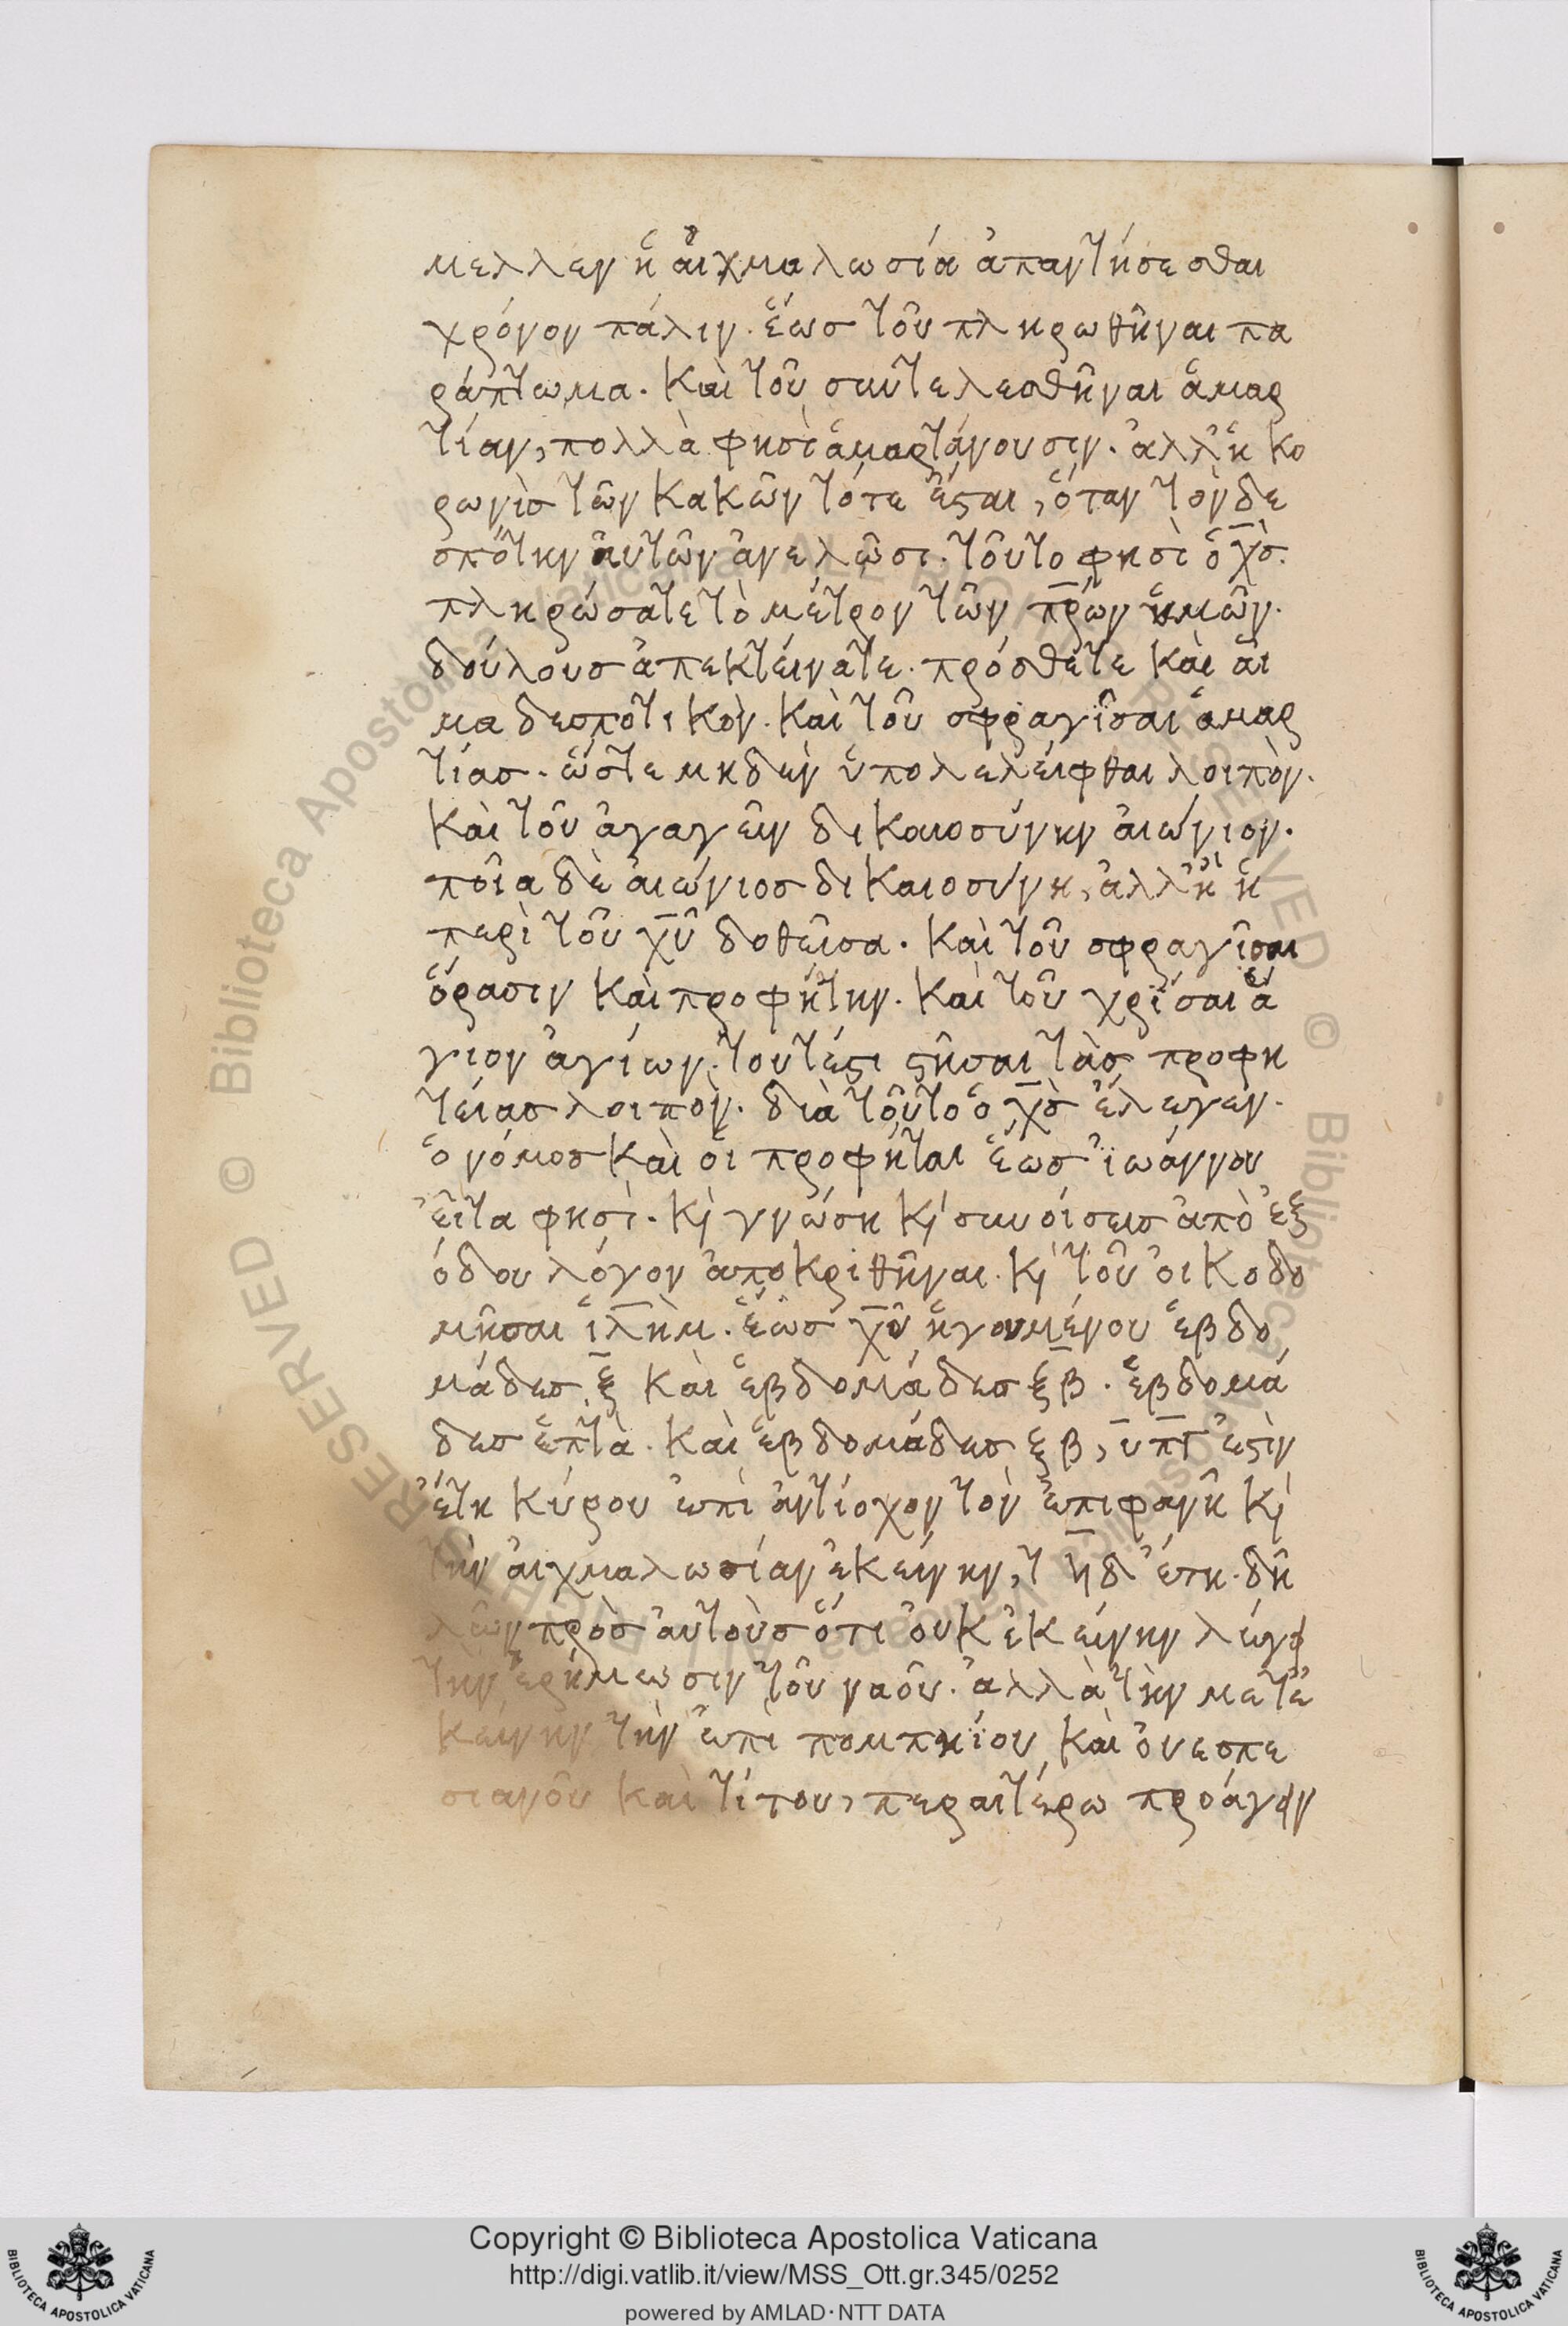 μελλεν ἡ αἰχμαλωσία ἀπαντήσεσθαι
χρόνον πάλιν. ἕως τοῦ πληρωθῆναι πα
ράπτωμα. καὶ τοῦ συντελεσθῆναι ἁμαρ
τίαν, πολλὰ φησὶ ἁμαρτάνουσιν. ἀλλ' ἡ κο
ρωνὶς τῶν κακῶν τότε ἔσται, ὅταν τὸν δε
σπότην αὐτῶν ἀνελῶσι. τοῦτο φησὶ ὁ χς.
πληρώσατε τὸ μέτρον τῶν πρων ἡμῶν.
δούλους ἀπεκτείνατε. πρόσθετε καὶ αἷ
μα δεσποτικόν. καὶ τοῦ σφραγῖσαι ἁμαρ
τίας. ὥστε μηδὲν ὑπολελεῖφθαι λοιπὸν.
καὶ τοῦ ἀγαγεῖν δικαιοσύνην αἰώνιον.
ποῖα δὲ αἰώνιος δικαιοσύνη, ἀλλ' ἢ ἡ
περὶ τοῦ χυ δοθεῖσα. καὶ τοῦ σφραγῖσαι
ὅρασιν καὶ προφήτην. καὶ τοῦ χρῖσαι ἅ
γιον ἁγίων. τουτέστι στῆσαι τὰς προφη
τείας λοιπὸν. διὰ τοῦτο ὁ χς ἔλεγεν.
ὁ νόμος καὶ οἱ προφῆται ἕως ἰωάννου
εἶτα φησὶ. κ γνώση κ συνοίσεις ἀπὸ ἐξ
όδου λόγον ἀποκριθῆναι. κ τοῦ οἰκοδο
μῆσαι ἱλημ. ἕως χυ ἡγουμένου ἑβδο
μάδες ξ καὶ ἑβδομάδες ξβ. ἑβδομά
δες ἑπτὰ. καὶ ἑβδομάδες ξβ, υπγ ἐστὶν
ἔτη κύρου ἐπὶ ἀντίοχον τὸν ἐπιφανῆ κ
τὴν αἰχμαλωσίαν ἐκείνην, τ ϟδ ἔτη. δη
λῶν πρὸς αὐτοὺς ὅτι οὐκ ἐκείνην λέγει
τὴν ἐρήμωσιν τοῦ ναοῦ. ἀλλὰ τὴν μετ' ἐ
κείνην τὴν ἐπὶ πομπηίου καὶ οὐεσπε
σιανοῦ καὶ τίτου, περαιτέρω προάγειν
Copyright © Biblioteca Apostolica Vaticana
http://digi.vatlib.it/view/MSS_Ott.gr.345/0252
powered by AMLAD·NTT DATA